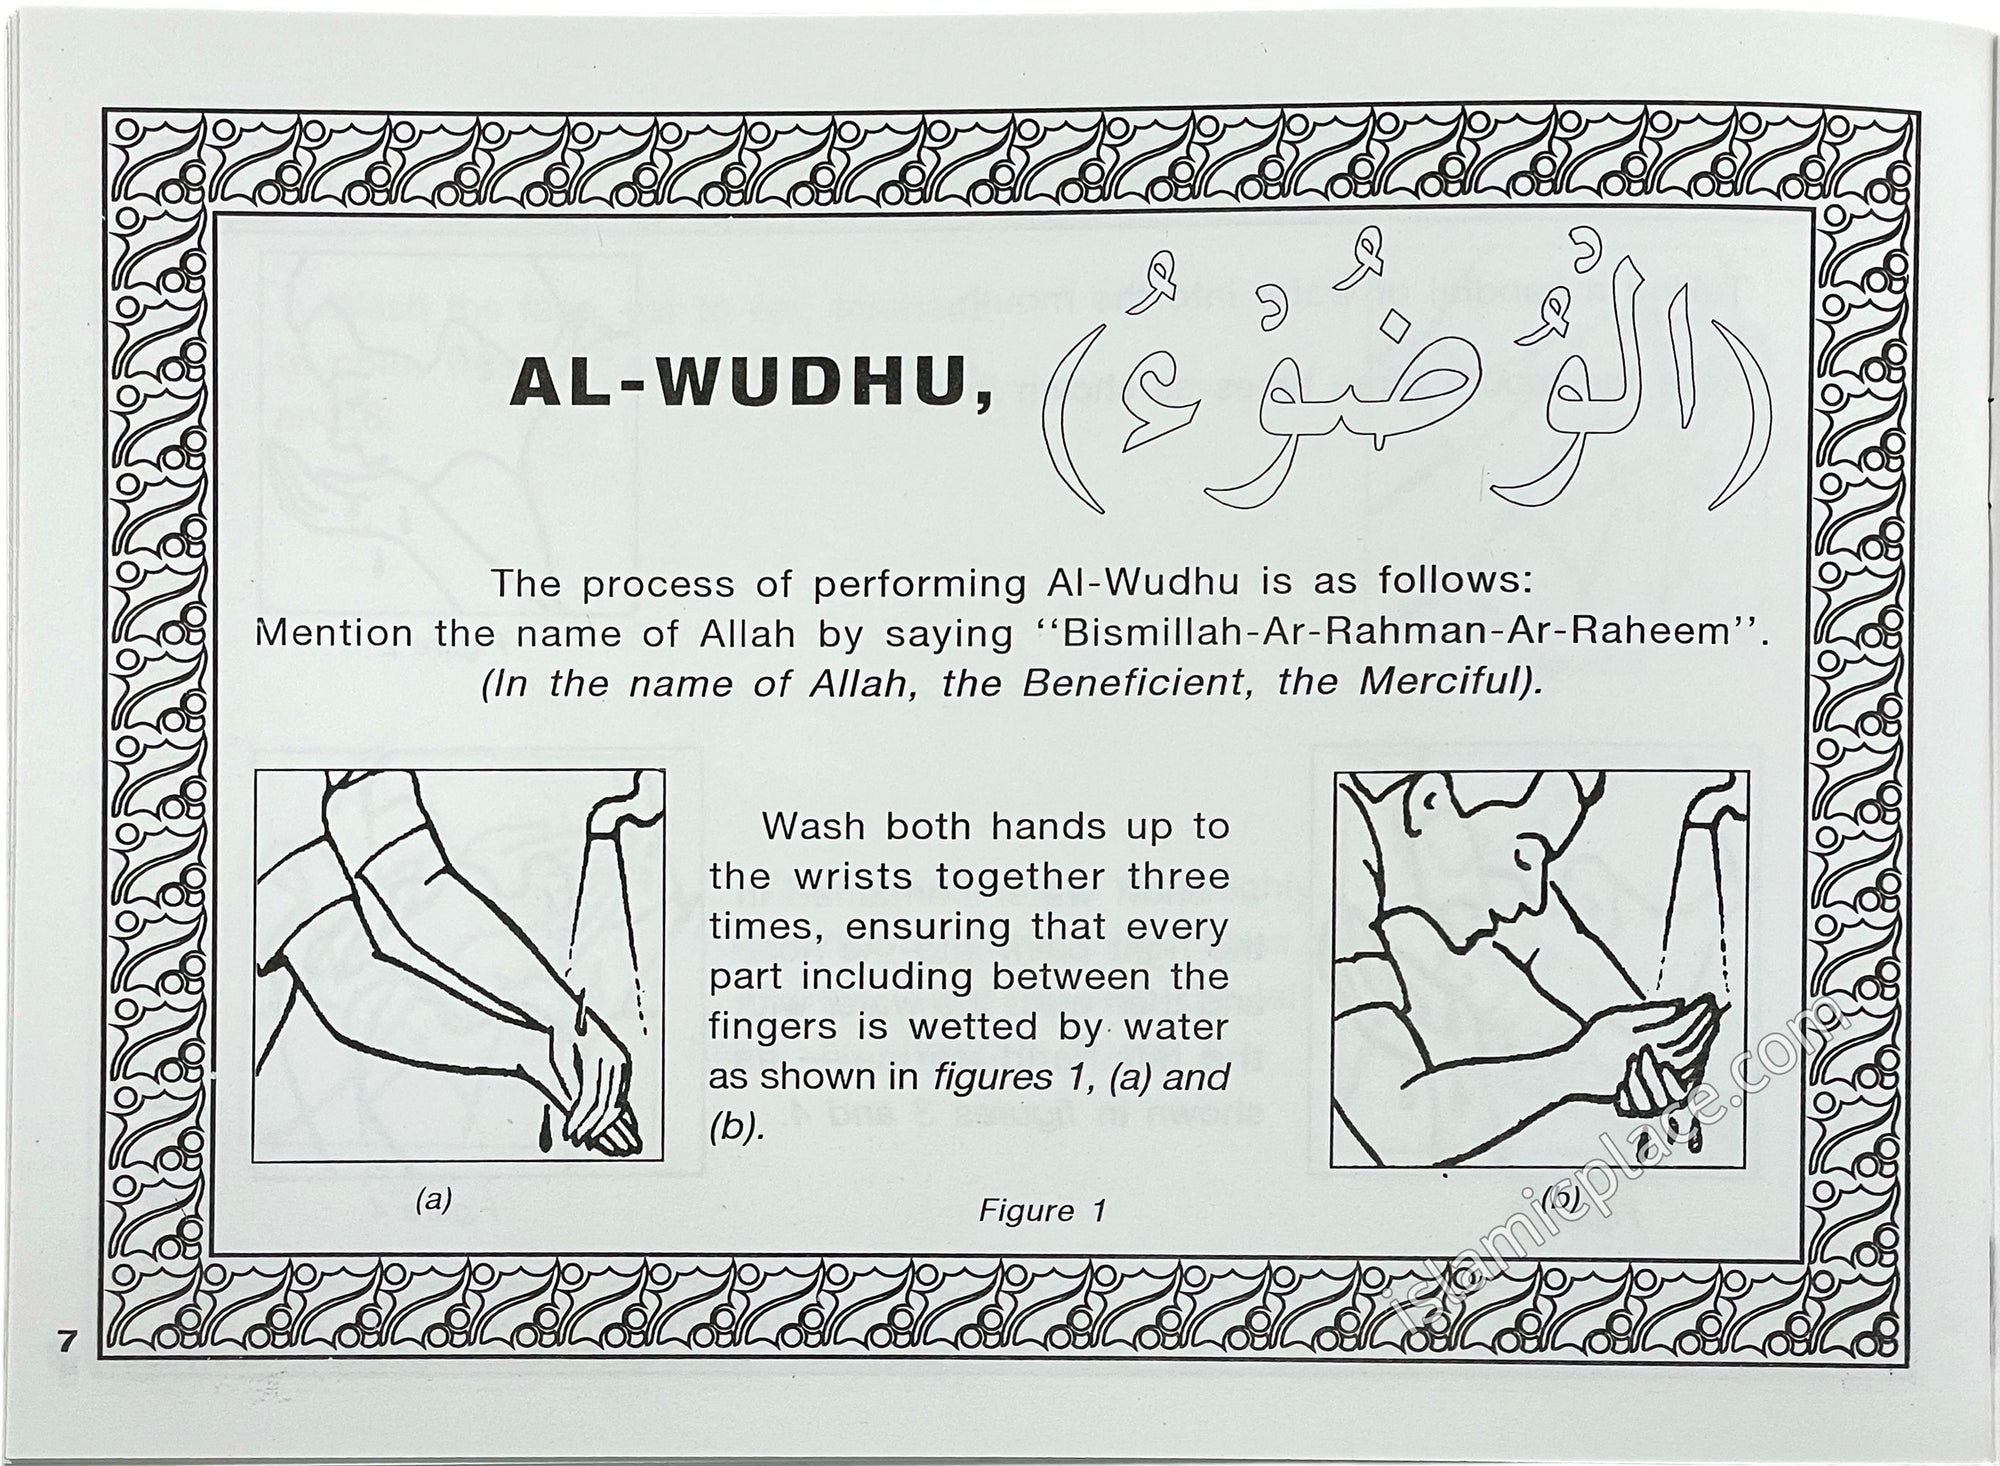 AL-WUDHU, (الْوُضُوْءُ)
The process of performing Al-Wudhu is as follows:
Mention the name of Allah by saying ‘‘Bismillah-Ar-Rahman-Ar-Raheem’’.
(In the name of Allah, the Beneficient, the Merciful).
Wash both hands up to
the wrists together three
times, ensuring that every
part including between the
fingers is wetted by water
as shown in figures 1, (a) and
(b).
(a)
Figure 1
(b)
7
islamicplace.com